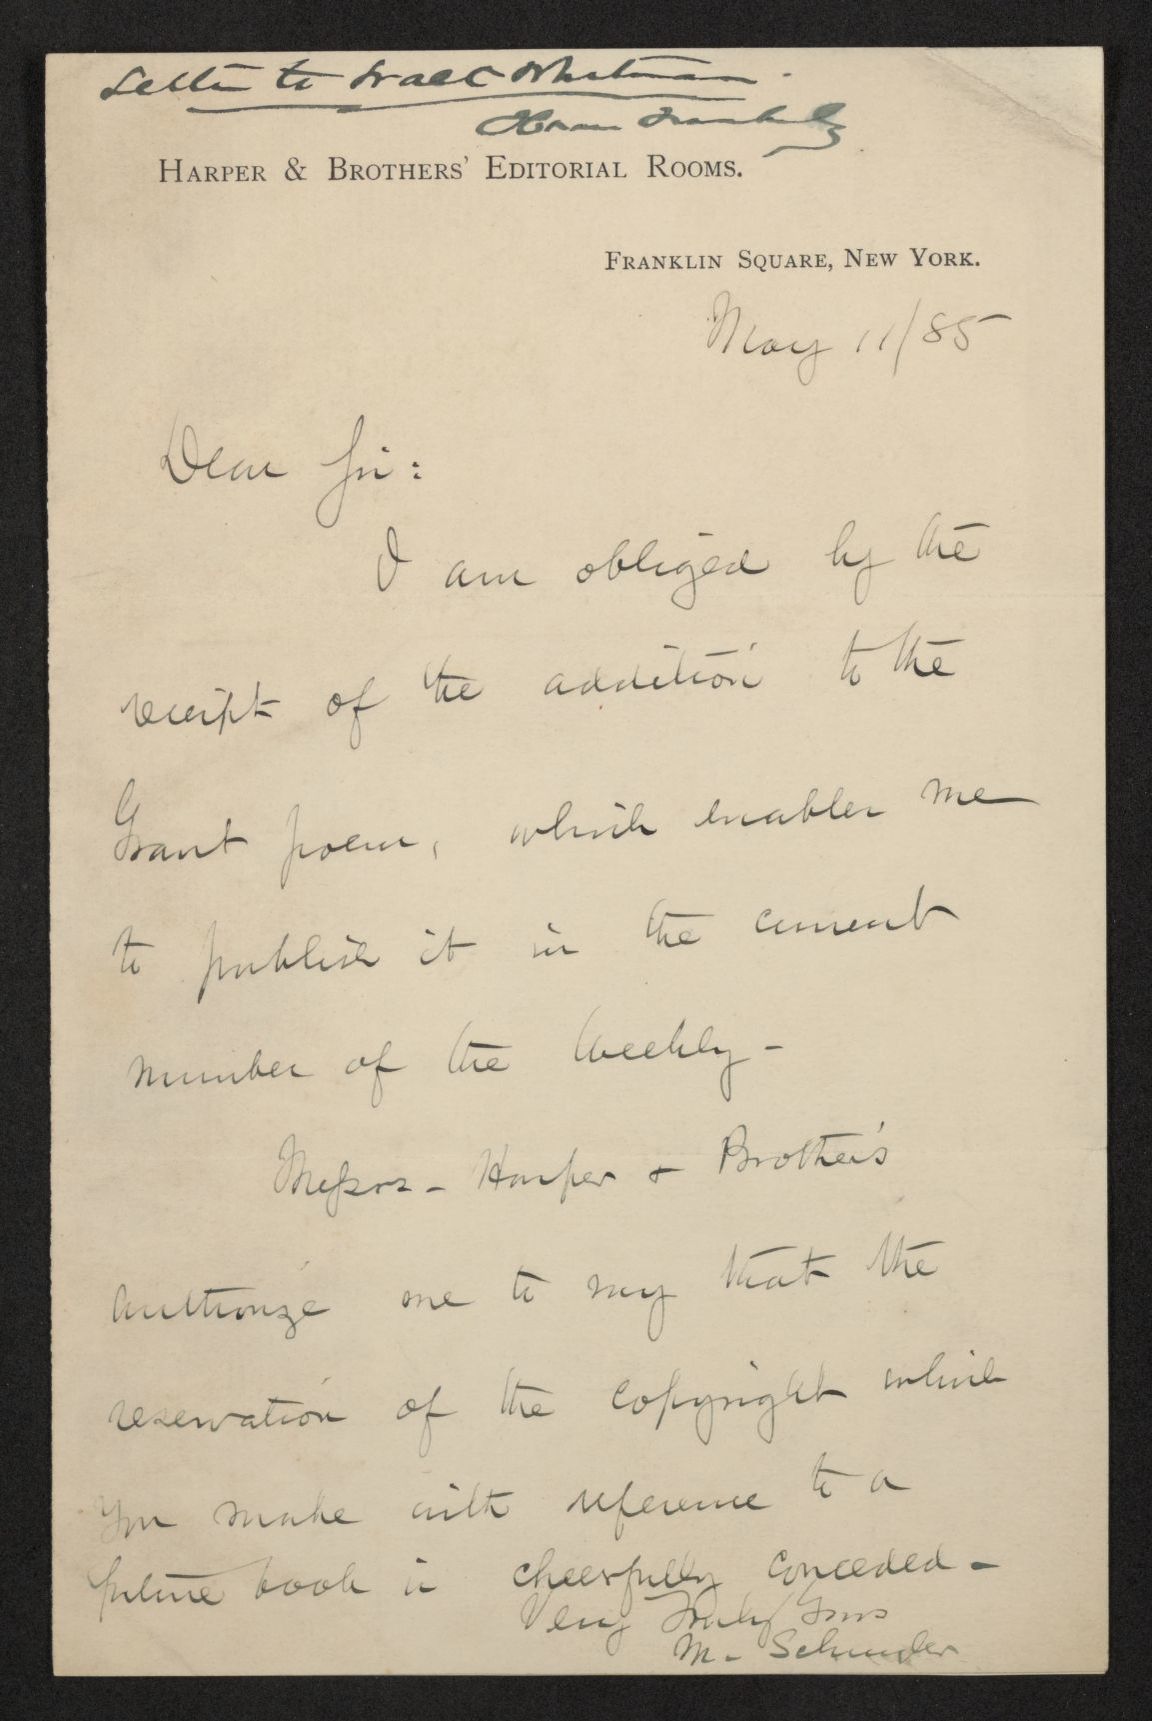 Letter to Walt Whitman.
HARPER & BROTHERS' EDITORIAL ROOMS.
FRANKLIN SQUARE, NEW YORK.
May 11/85
Dear Sir:
I am obliged by the
receipt of the addition to the
Grant poem, which enables me
to publish it in the current
number of the Weekly -
Messrs - Harper & Brothers
authorize me to say that the
reservation of the copyright which
you make with reference to a
future book is cheerfully conceded -
Very Truly Yours
M. Schuyler